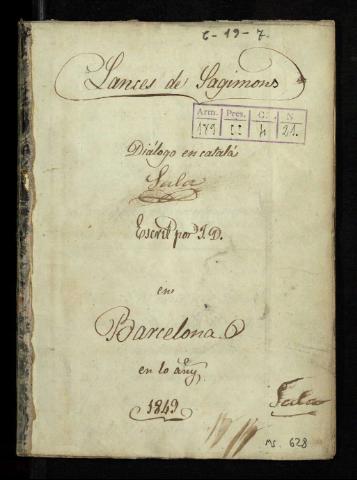 C-19-7.
Lances de Sagimons
Arm. Pres. C. N.
189 II 4 21.
Diálogo en catalá
Sala
Escrit por J. D.
en
Barcelona
en lo añy,
1849
Sala
Ms. 628